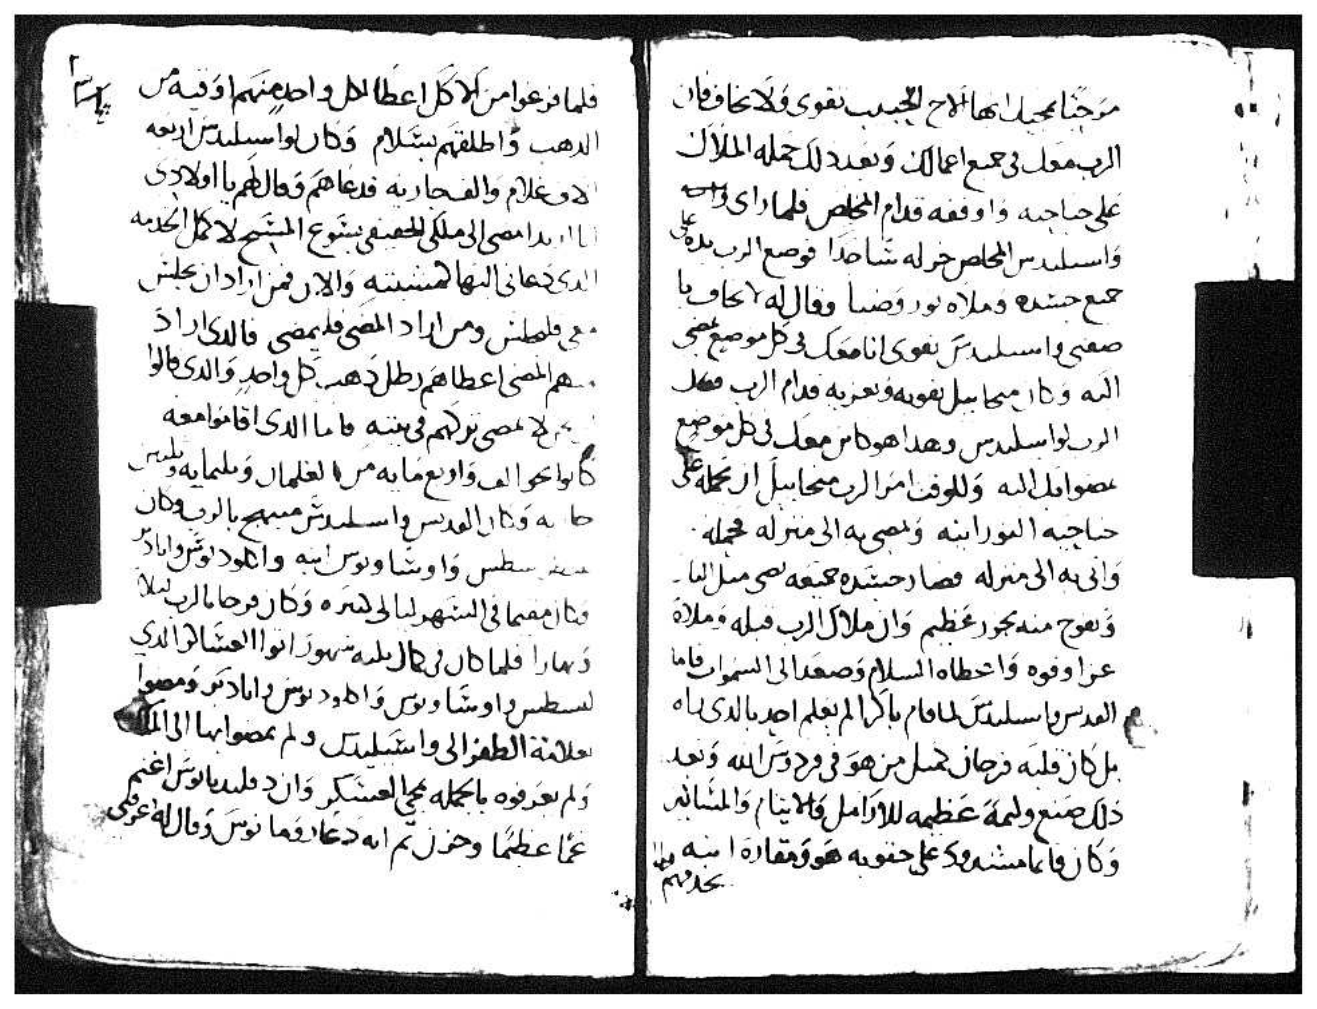 مرحبا بمجيك ايها الاخ الحبيب تقوى ولا تخاف فان
الرب معك فى جميع اعمالك وبعد ذلك حمله الملاك
على جناحيه واوقفه قدام المخلص فلما راى واحد
واسيليدس المخلص خر له ساجدا فوضع الرب يده على
جميع جسده وملاه نور وضيا وقال له لا تخاف يا
صفيى واسيليدس تقوى انا معك فى كل موضع تمضى
اليه وكان ميخاييل يقويه ويعزيه قدام الرب فقال
الرب لواسيليدس وهذا هو كاين معك فى كل موضع
تمضوا بك اليه وللوقت امر الرب ميخاييل ان يحمله على
جناحيه النورانيه ويمضى به الى منزله فحمله
واتى به الى منزله فصار جسده جميعه يضى مثل النار
ويفوح منه بخور عظيم وان ملاك الرب قبله وملاه
عزا وقوه واعطاه السلام وصعد الى السموات فاما
القديس واسيليدس لما قام باكرا لم يعلم احد بالذى راه
بل كان قلبه فرحان كمثل من هو فى فردوس الله وبعد
ذلك صنع وليمة عظيمه للارامل والايتام والمساكين
وكان قايما مشدود على حقويه هو ومقارة ابنه وهما
يخدموهم
فلما فرغوا من الاكل اعطا لكل واحد منهم اوقيه من
الدهب واطلقهم بسلام وكان لواسيليدس اربعه
الاف غلام والف جاريه فدعاهم وقال لهم يا اولادى
انا اريد امضى الى ملكى الحقيقى يسوع المسيح لاكمل الخدمه
الذى دعانى اليها كمشيته والان فمن اراد ان يجلس
معى فليجلس ومن اراد المضى فليمضى فالذى اراد
منهم المضى اعطاهم رطل ذهب كل واحد والذى قالوا
نحن لا نمضى تركهم فى بيته فاما الذى اقاموا معه
كانوا نحو الف واربع مايه من الغلمان وثلثمايه وثلثين
جاريه وكان القديس واسيليدس مبتهج بالرب وكان
اوسطس واوساويوس ابنه واقلوديوس واباد\u200cير
فكان مقيما فى السهر ليالى كثيره وكان فرحا بالرب ليلا
ونهارا فلما كان فى كمال ثلثه شهور اتوا العشاكر الذى
لسطس واوساويوس واقلوديوس وابادير ومضوا
بعلامة الظفر الى واسيليدس ولم يمضوا بها الى الملك
ولم يعرفوه بالجمله بمجى العسكر وان دقلديانوس اغتم
غما عظيما وحزن ثم انه دعا رومانوس وقال له اعرفى